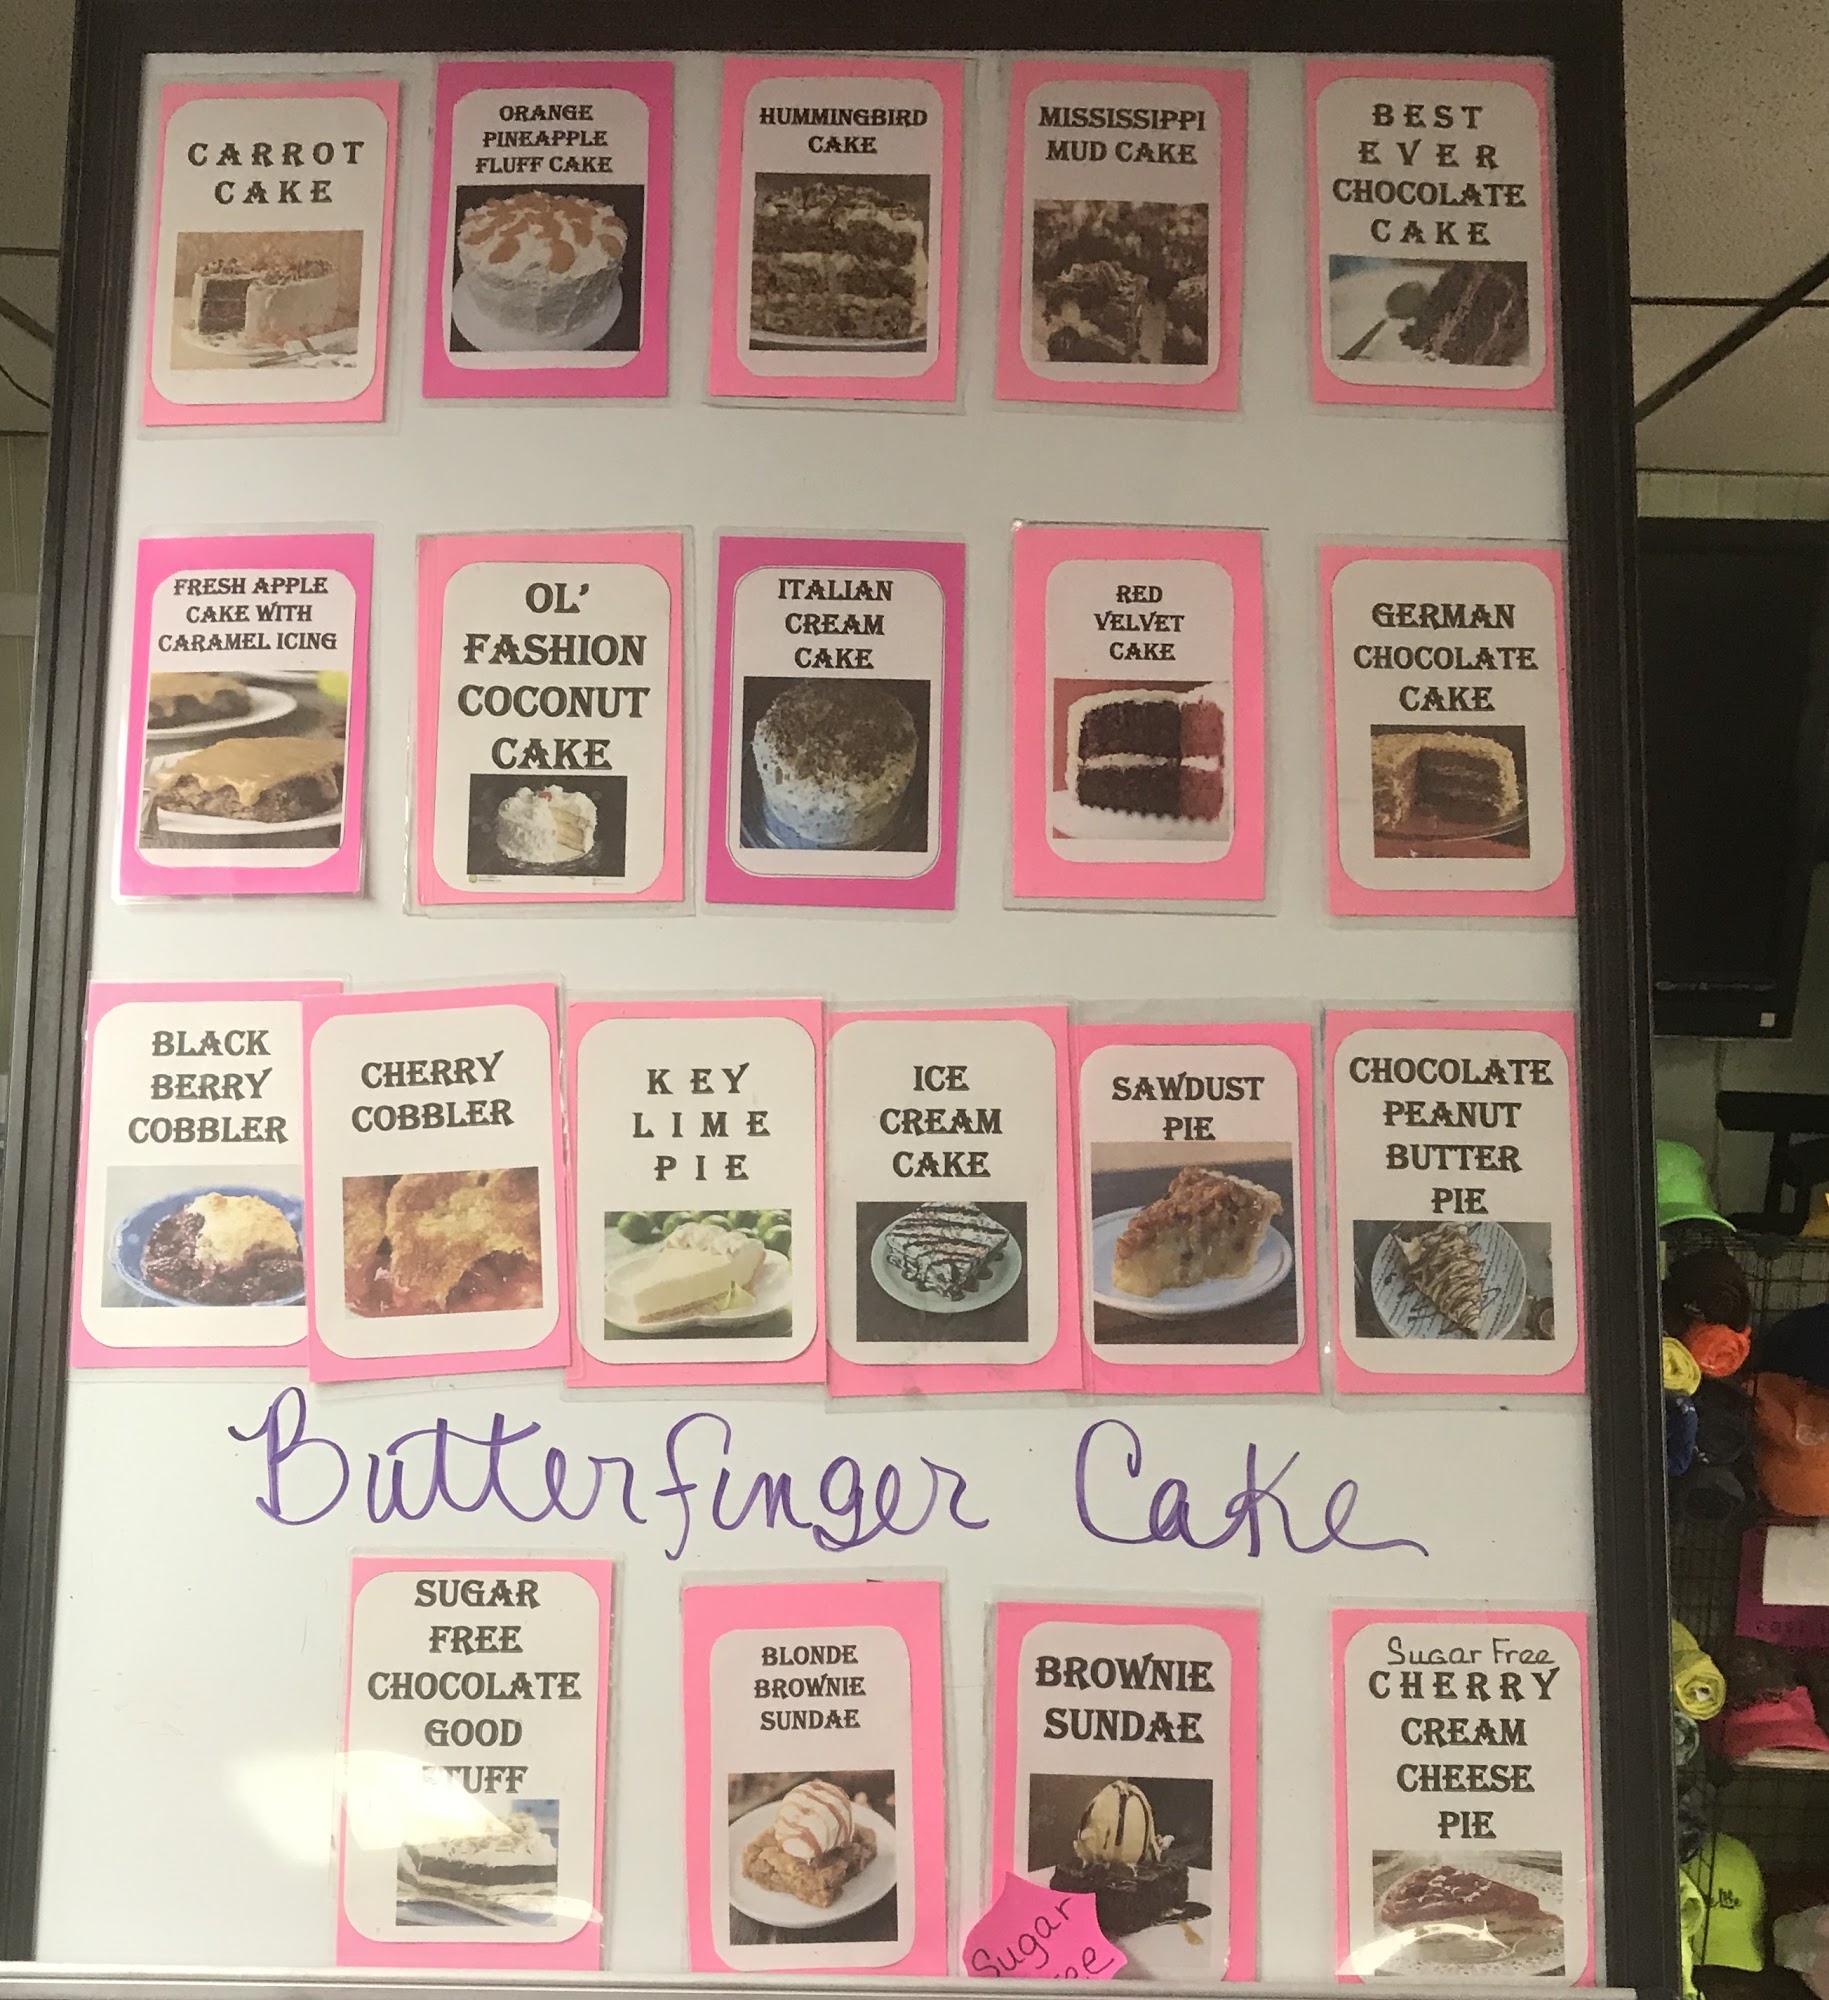 CARROT
CAKE
ORANGE
PINEAPPLE
FLUFF CAKE
HUMMINGBIRD
CAKE
MISSISSIPPI
MUD CAKE
BEST
EVER
CHOCOLATE
CAKE
FRESH APPLE
CAKE WITH
CARAMEL ICING
OL'
FASHION
COCONUT
CAKE
ITALIAN
CREAM
CAKE
RED
VELVET
CAKE
GERMAN
CHOCOLATE
CAKE
BLACK
BERRY
COBBLER
CHERRY
COBBLER
KEY
LIME
PIE
ICE
CREAM
CAKE
SAWDUST
PIE
CHOCOLATE
PEANUT
BUTTER
PIE
Butterfinger Cake
SUGAR
FREE
CHOCOLATE
GOOD
STUFF
BLONDE
BROWNIE
SUNDAE
BROWNIE
SUNDAE
Sugar
Sugar Free
CHERRY
CREAM
CHEESE
PIE